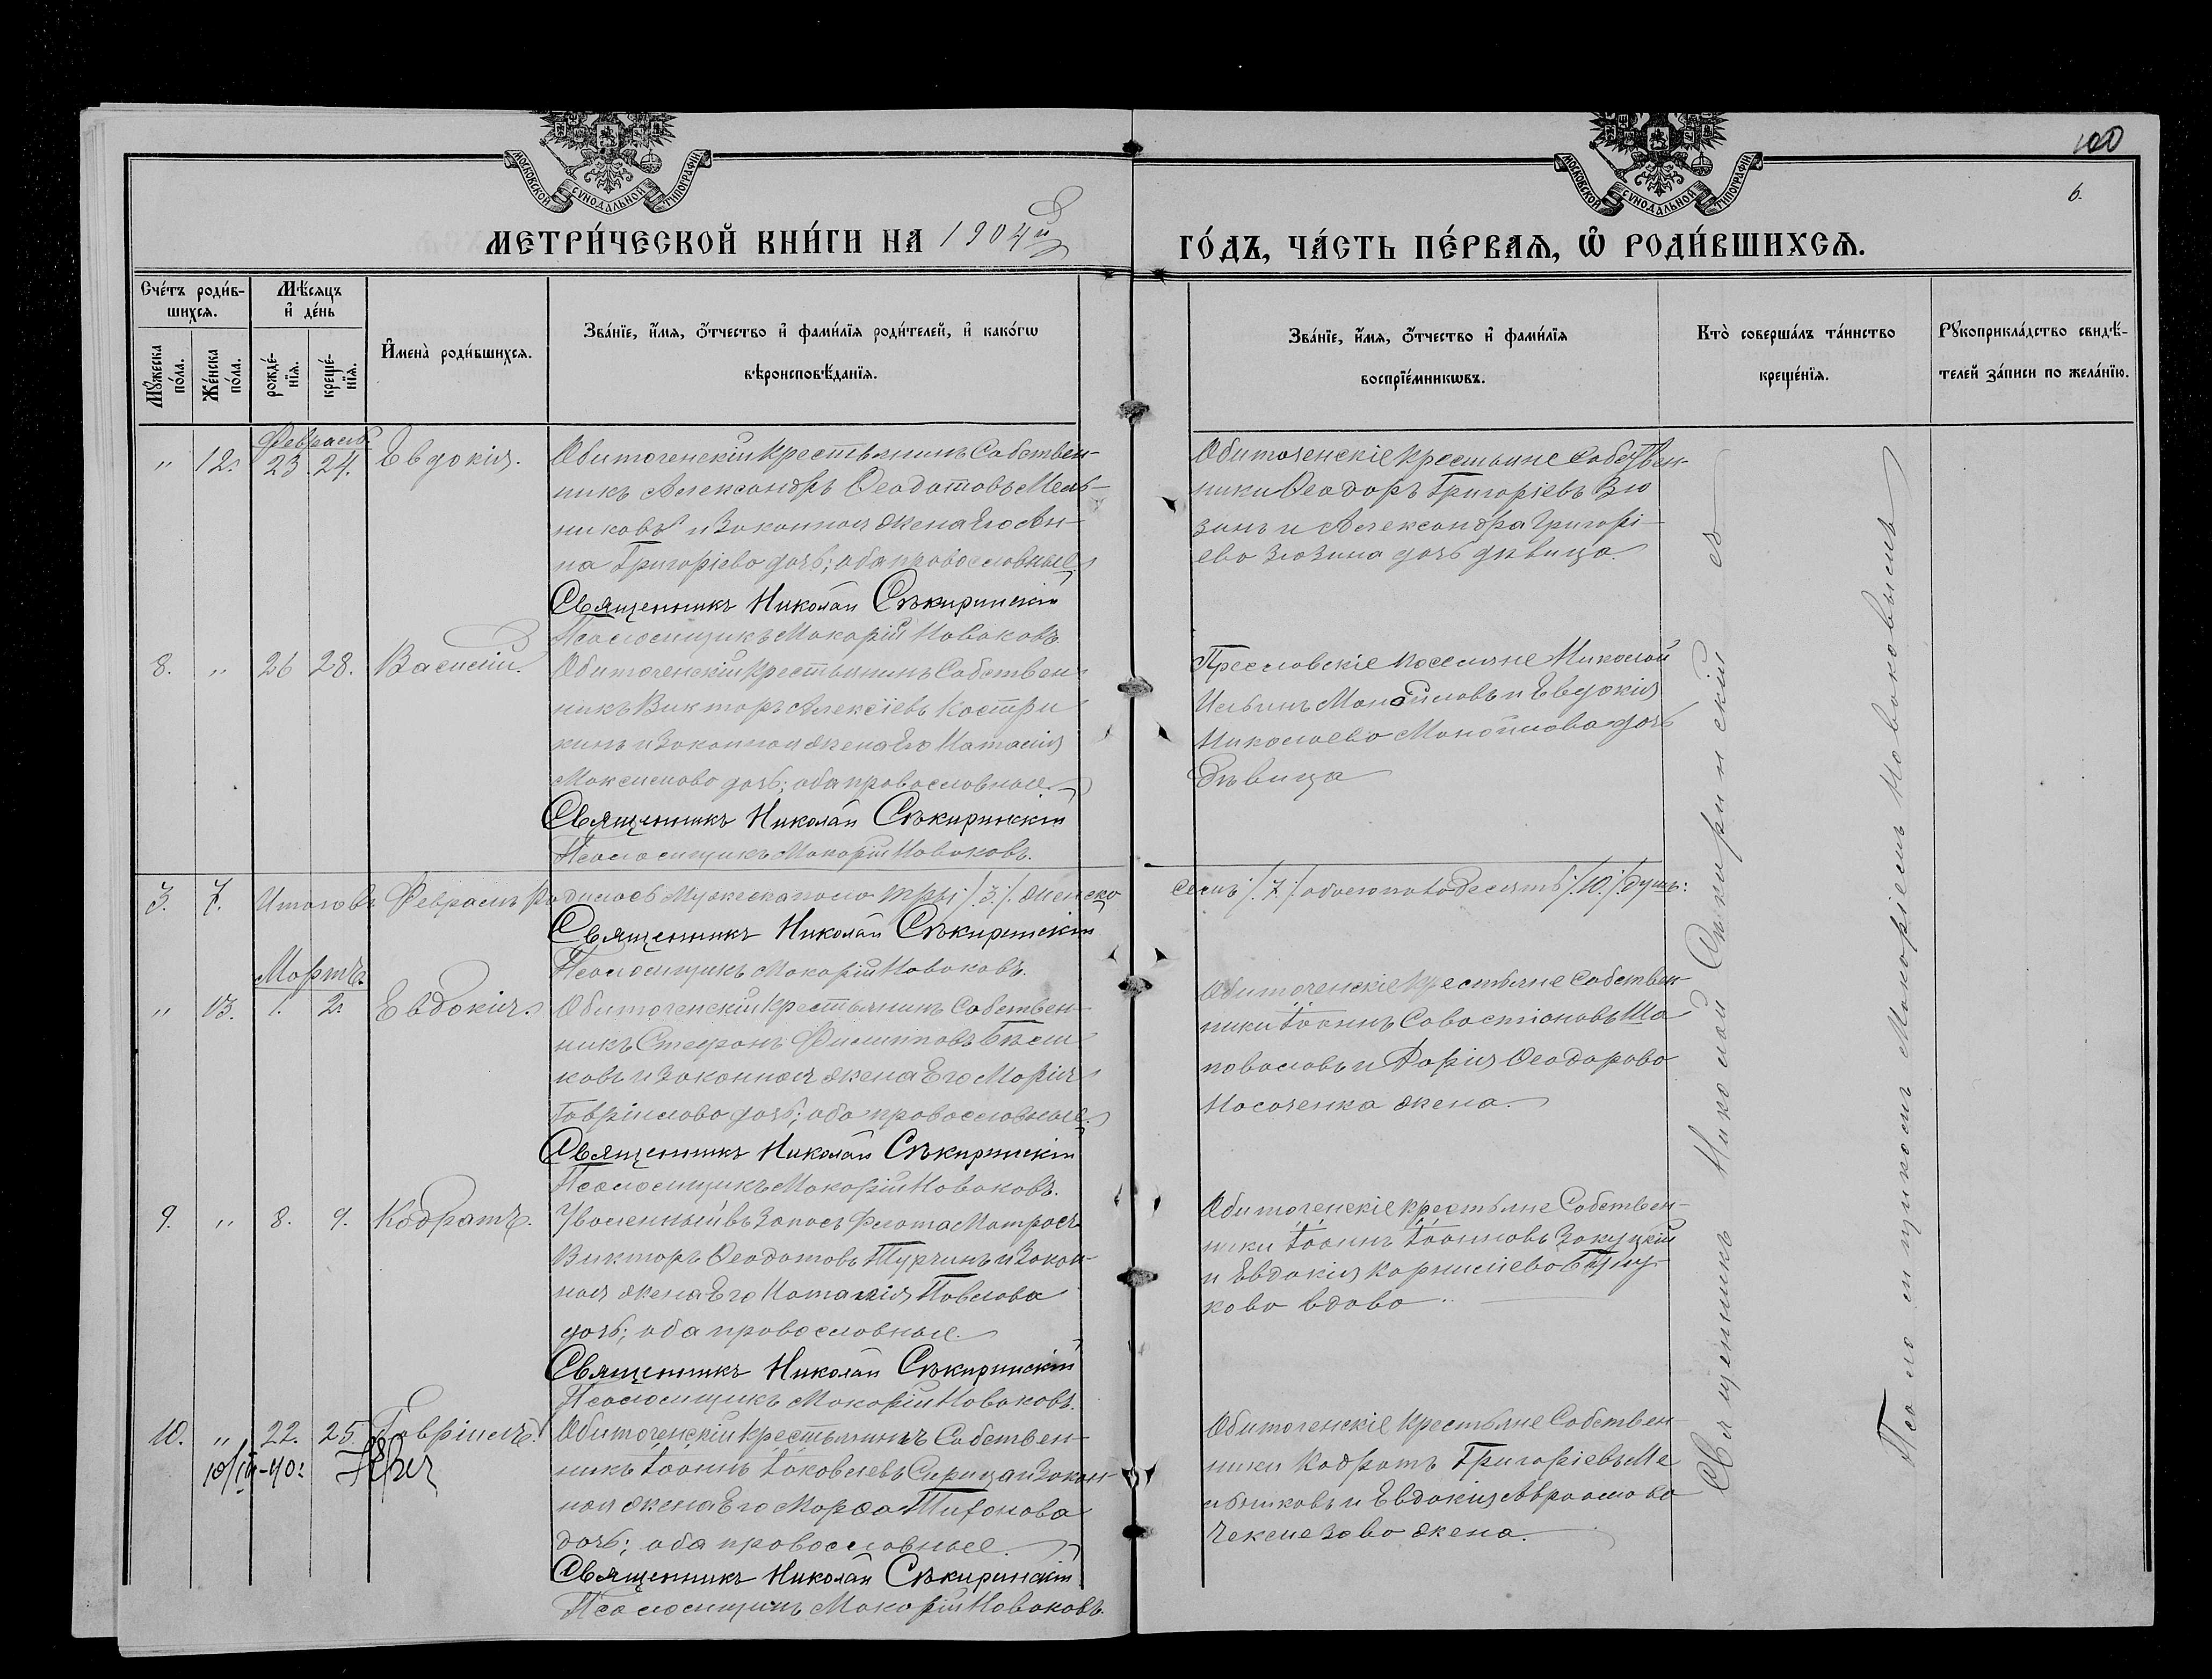 МОСКОВСКОЙ СУНОДАЛЬНОЙ ТИПОГРАФІИ
МОСКОВСКОЙ СУНОДАЛЬНОЙ ТИПОГРАФІИ
100
6.
МЕТРИ́ЧЕСКОЙ КНИ́ГИ НА 1904й
ГО́ДЪ, ЧА́СТЬ ПЕ́РВАЯ, Ѽ РОДИ́ВШИХСЯ.
Сче́тъ роди́в-
шихся.
Мѣ́сяцъ
и҆ де́нь
Мꙋ́жеска по́ла.
Же́нска по́ла.
рожде́-
нїя.
креще́-
нїя.
И҆мена̀ роди́вшихся.
Зва́нїе, и҆́мя, ѻ҆́тчество и҆ фами́лїя роди́телей, и҆ како́гѡ
вѣроисповѣ́данїя.
Зва́нїе, и҆́мя, ѻ҆́тчество и҆ фами́лїя
воспрїе́мникѡвъ.
Кто̀ соверша́лъ та́инство
креще́нїя.
Рꙋкоприкла́дство свидѣ́-
телей за́писи по жела́нїю.
Февраль.
" 12. 23. 24. Евдокія.
Обиточенскій крестьянинъ Собствен-
никъ Александръ Ѳеодотовъ Мель-
никовъ и Законная жена Его Ан-
на Григоріева дочь; оба православные
Священникъ Николай Сѣкиринскій
Псаломщикъ Макарій Новаковъ.
Обиточенскіе крестьяне Собствен-
ники Ѳеодоръ Григоріевъ Зю
зинъ и Александра Григорі-
ева Зюзина дочь дѣвица
8. " 26 28. Василій.
Обиточенскій крестьянинъ Собствен-
никъ Викторъ Алексіевъ Костри
кинъ и Законная жена Его Наталія
Максимова дочь; оба православные
Священникъ Николай Сѣкиринскій
Псаломщикъ Макарій Новаковъ.
Преславскіе поселяне Николай
Ильинъ Манойловъ и Евдокія
Николаева Манойлова дочь
Дѣвица
3. 7. Итого въ Февралѣ родилось Мужеска пола три /.3./. женска
семь /.7./ обоего пола Десять /.10./ душъ.
Священникъ Николай Сѣкиринскій
Псаломщикъ Макарій Новаковъ.
Мартъ.
" 13. 1. 2. Евдокія.
Обиточенскій крестьянинъ Собствен-
никъ Стефанъ Филипповъ
ковъ и Законная жена Его Марія
Гавріилова дочь; оба православные.
Священникъ Николай Сѣкиринскій
Псаломщикъ Макарій Новаковъ.
Обиточенскіе крестьяне Собствен-
ники Іоаннъ Савастіановъ Ша
поваловъ и Дарія Ѳеодорова
Носаченка жена.
9. " 8. 9. Кодратъ.
Уволенный въ Запасъ Флота Матросъ
Викторъ Ѳеодотовъ Турчинъ и Закон-
ная жена Его Наталія Павлова
дочь; оба православные.
Священникъ Николай Сѣкиринскій
Псаломщикъ Макарій Новаковъ.
Обиточенскіе крестьяне Собствен-
ники Іоаннъ Іоанновъ Закуцкій
и Евдокія Корниліева
кова вдова
10. " 22. 25 Гавріилъ.
Обиточенскій крестьянинъ Собствен-
никъ Іоаннъ Іаковлевъ Сирица и Закон-
ная жена Его Марѳа Тихонова
дочь; оба православные.
Священникъ Николай Сѣкиринскій
Псаломщикъ Макарій Новаковъ.
Обиточенскіе крестьяне Собствен-
ники Кодратъ Григоріевъ Ме
льниковъ и Евдокія Авраамова
жена.
Священникъ Николай Сѣкиринскій съ
Псаломщикомъ Макаріемъ Новаковымъ